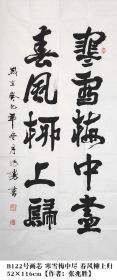 寒雪梅中盡
春風柳上歸
癸巳年
B122号画芯 寒雪梅中尽 春风柳上归
52×116cm【作者：张兆胜】